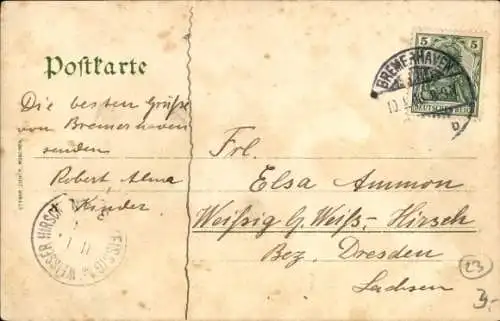 Postkarte
Die besten Grüße
von Bremerhaven
senden
Robert Alma
Kinder
Frl.
Elsa Ammon
Weißig b/ Weiß-Hirsch
Bez. Dresden
Sachsen
5 5
BREMERHAVEN
DEUTSCHES REICH
b
WEISSER HIRSCH
23
3,-